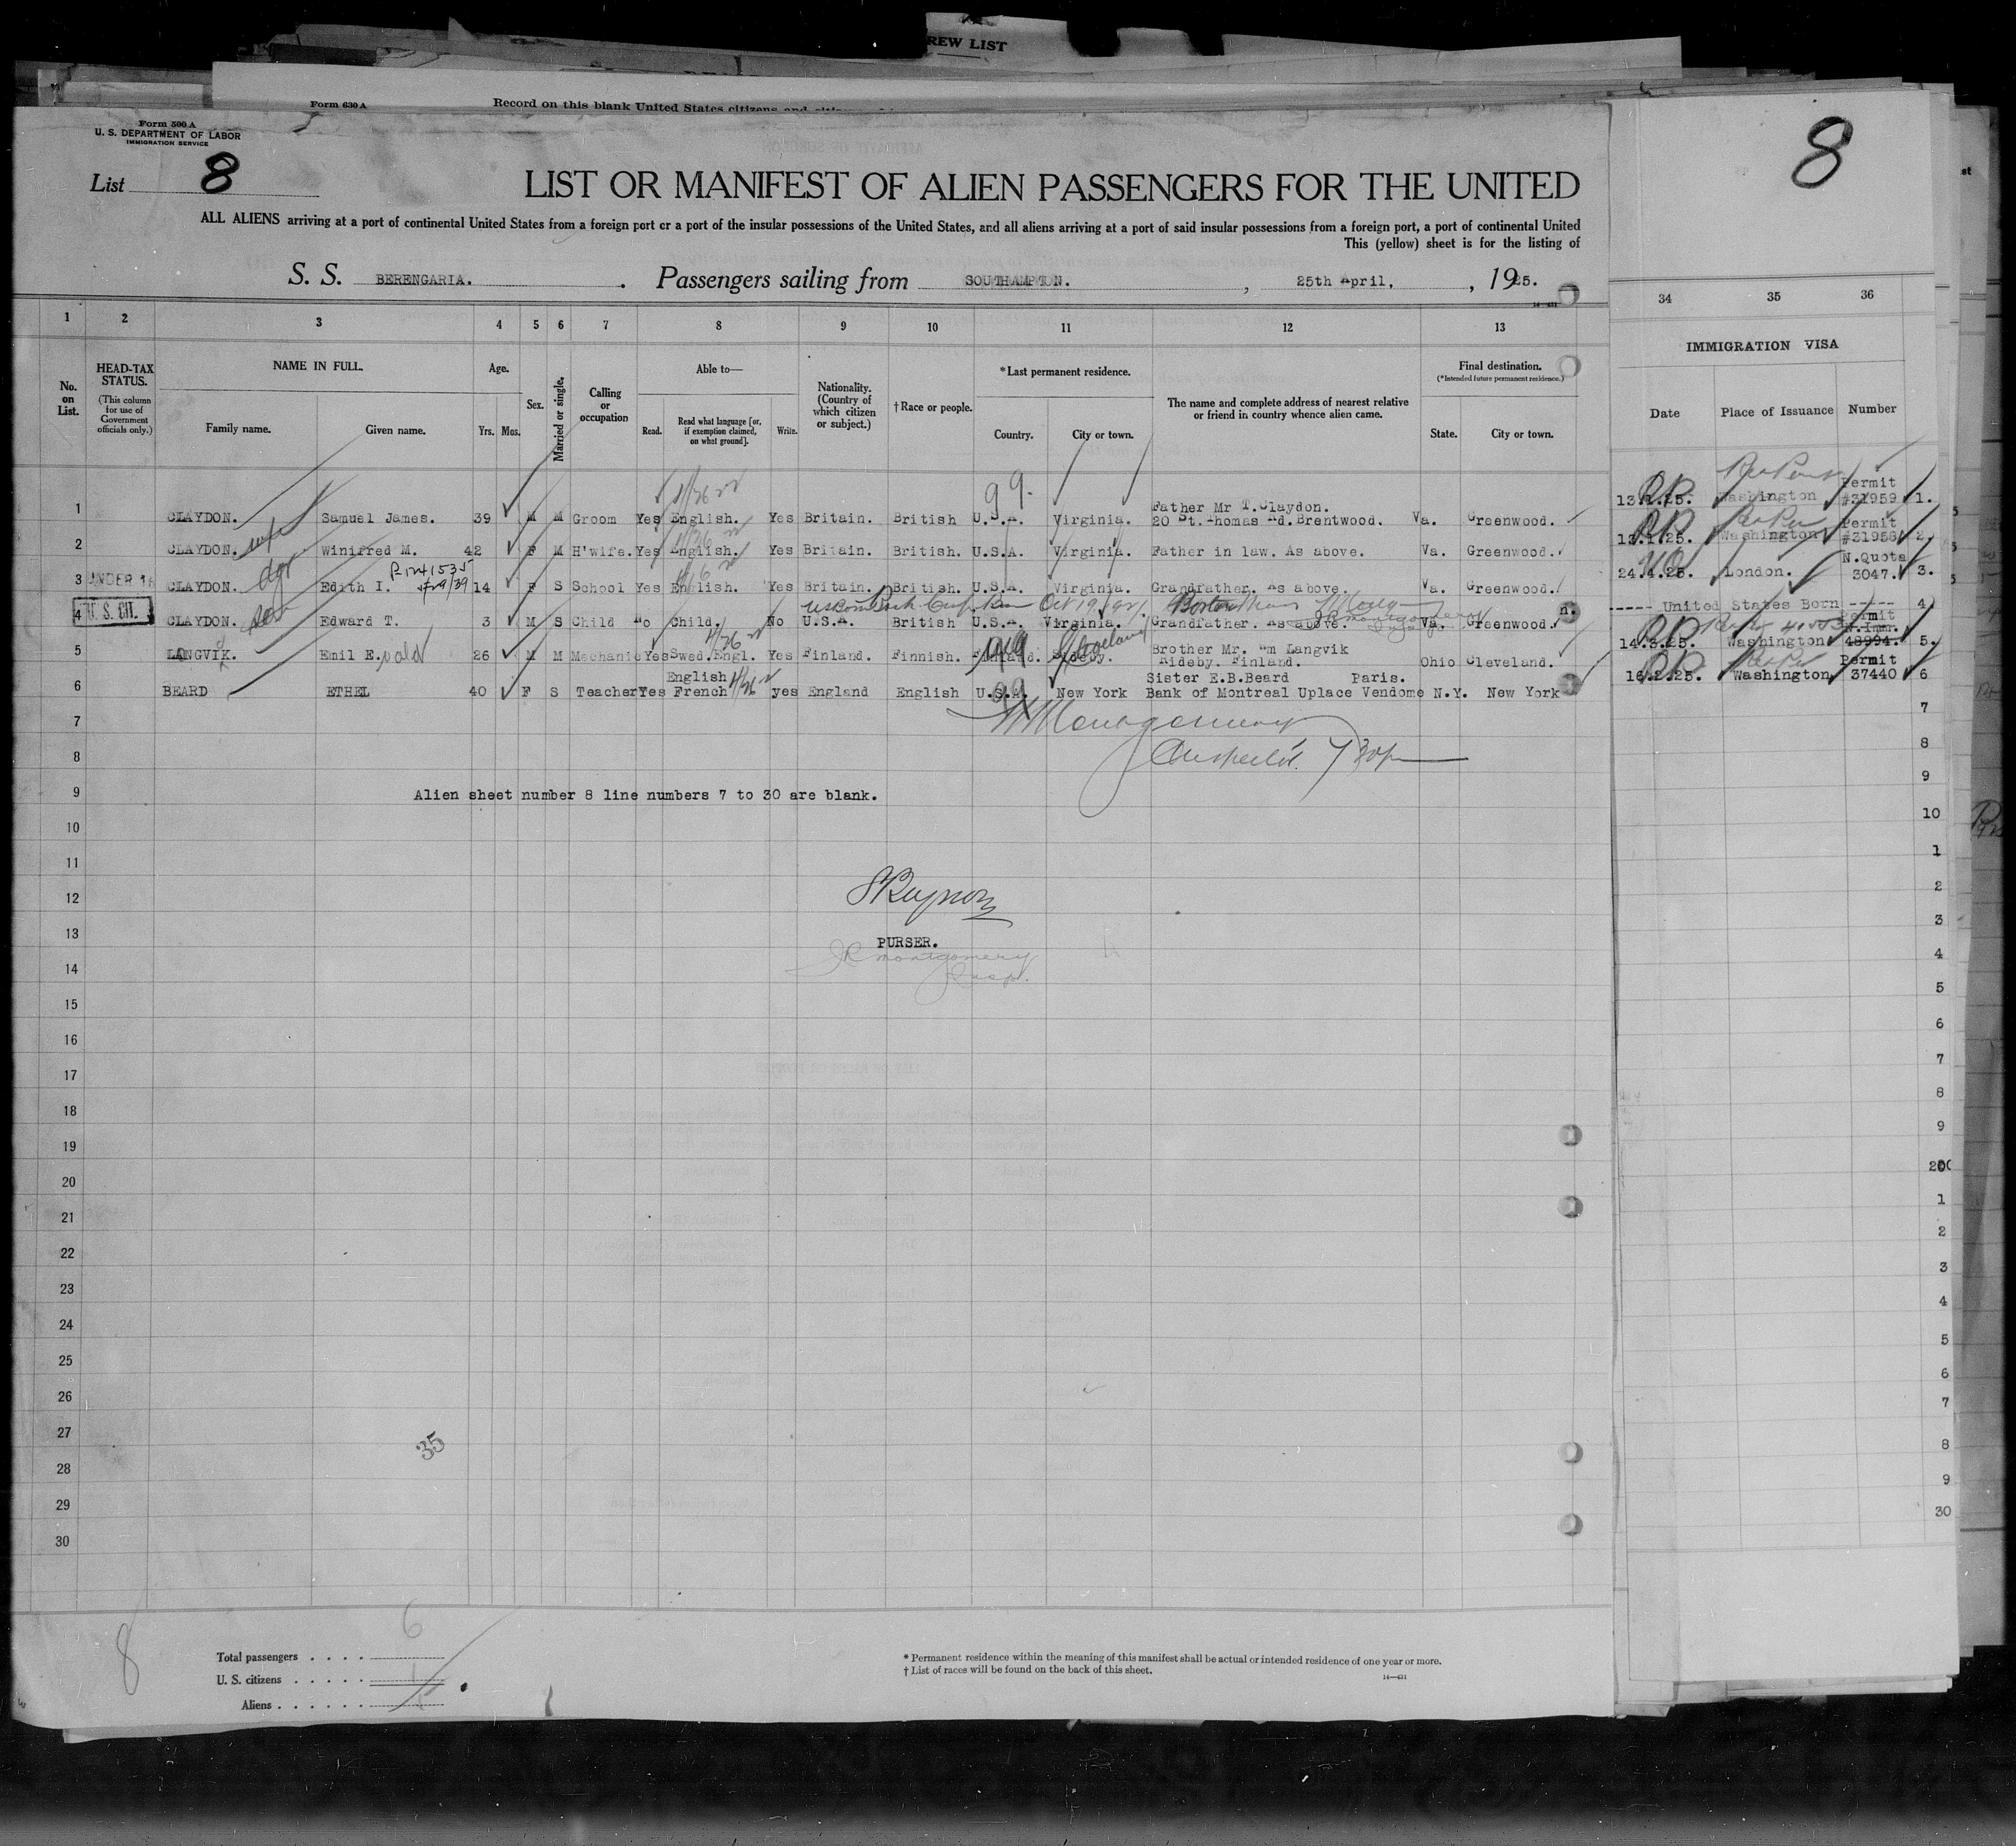 REW LIST
Form 630 A
Record on this blank United States citizens and
Form 500 A
U. S. DEPARTMENT OF LABOR
IMMIGRATION SERVICE
8
List 8
LIST OR MANIFEST OF ALIEN PASSENGERS FOR THE UNITED
ALL ALIENS arriving at a port of continental United States from a foreign port or a port of the insular possessions of the United States, and all aliens arriving at a port of said insular possessions from a foreign port, a port of continental United
This (yellow) sheet is for the listing of
S. S. BERENGARIA. Passengers sailing from SOUTHAMPTON. , 25th April, , 1925.
1 2 3 4 5 6 7 8 9 10 11 12 13 34 35 36
IMMIGRATION VISA
No. on List.
HEAD-TAX STATUS.
(This column for use of Government officials only.)
NAME IN FULL.
Family name. Given name.
Age.
Yrs. Mos.
Sex.
Married or single.
Calling or occupation
Able to—
Read. Read what language [or, if exemption claimed, on what ground]. Write.
Nationality. (Country of which citizen or subject.)
†Race or people.
*Last permanent residence.
Country. City or town.
The name and complete address of nearest relative or friend in country whence alien came.
Final destination.
(*Intended future permanent residence.)
State. City or town.
Date Place of Issuance Number
1 CLAYDON. Samuel James. 39 M M Groom Yes English. Yes Britain. British U.S.A. Virginia. Father Mr T.Claydon. 20 St.Thomas Rd.Brentwood. Va. Greenwood. 13.1.25. Washington Permit #31959 1.
2 CLAYDON. wife Winifred M. 42 F M H'wife. Yes English. Yes Britain. British. U.S.A. Virginia. Father in law. As above. Va. Greenwood. 13.1.25. Washington Permit #31958 2.
3 UNDER 16 CLAYDON. dgr Edith I. 14 F S School Yes English. Yes Britain. British. U.S.A. Virginia. Grandfather. As above. Va. Greenwood. 24.4.25. London. N.Quota 3047. 3.
4 U. S. CIT. CLAYDON. son Edward T. 3 M S Child No Child. No U.S.A. British U.S.A. Virginia. Grandfather. As above. Va. Greenwood. ----- United States Born ----- 4
5 LANGVIK. Emil E. 26 M M Mechanic Yes Swed.Engl. Yes Finland. Finnish. Finland. Sideby. Brother Mr. Wm Langvik Sideby. Finland. Ohio Cleveland. 14.3.25. Washington Permit N.Imm. 48994. 5.
6 BEARD ETHEL 40 F S Teacher Yes English French yes England English U.S.A. New York Sister E.B.Beard Paris. Bank of Montreal Uplace Vendome N.Y. New York 16.2.25. Washington Permit 37440 6
7 7
8 8
9 Alien sheet number 8 line numbers 7 to 30 are blank. 9
10 10
11 1
12 2
13 PURSER. 3
JR Montgomery
Insp.
14 4
15 5
16 6
17 7
18 8
19 9
20 20
21 1
22 2
23 3
24 4
25 5
26 6
27 7
35
28 8
29 9
30 30
8
Total passengers . . . . 6
U. S. citizens . . . . . 1
Aliens . . . . . .
* Permanent residence within the meaning of this manifest shall be actual or intended residence of one year or more.
† List of races will be found on the back of this sheet.
14—431